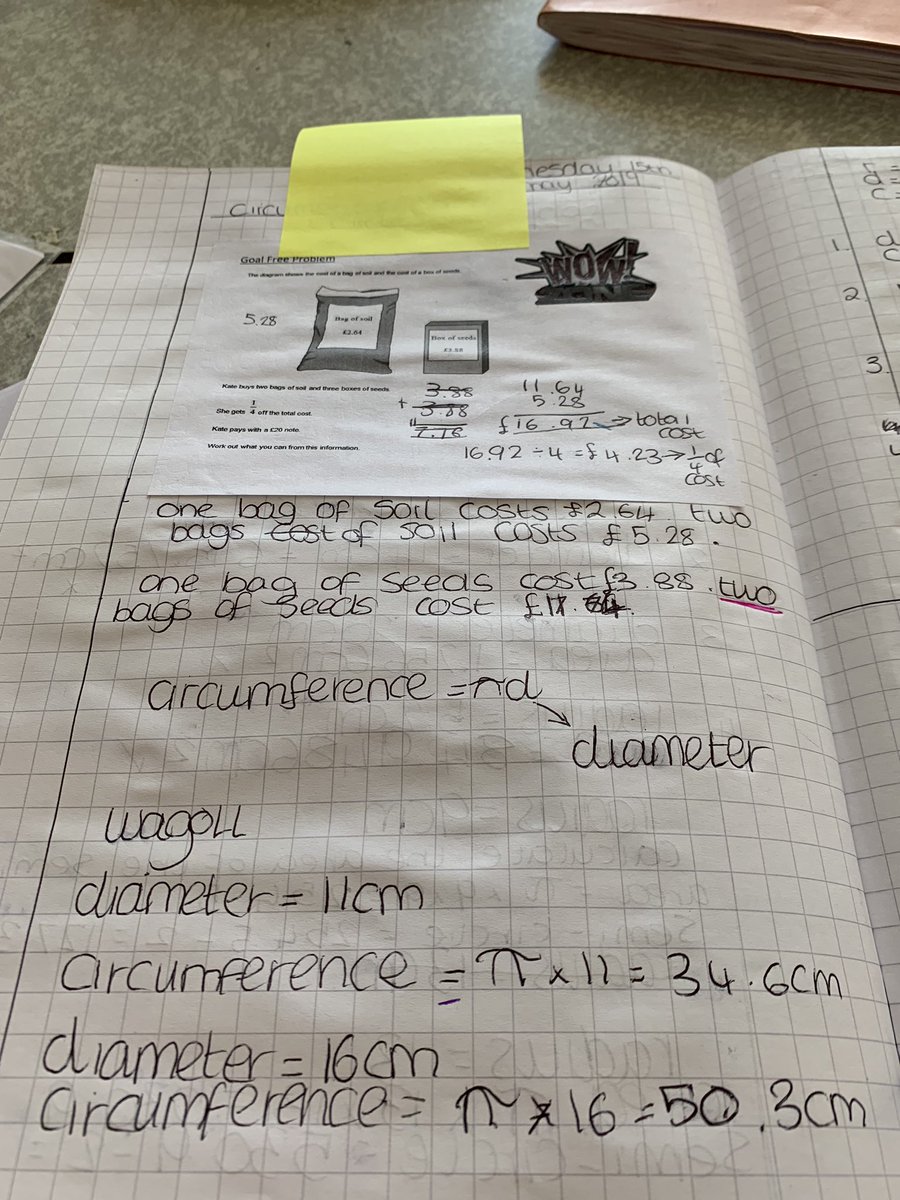 nesday 15th
may 2019
Circu
Goal Free Problem
The diagram shows the cost of a bag of soil and the cost of a box of seeds.
WOW!
ZONE
5.28
Bag of soil
£2.64
Box of seeds
£3.88
Kate buys two bags of soil and three boxes of seeds.
She gets 1/4 off the total cost.
Kate pays with a £20 note.
Work out what you can from this information.
3.88
+ 3.88
7.16
11.64
5.28
£16.92 → total cost
16.92 ÷ 4 = £4.23 → 1/4 of cost
one bag of soil costs £2.64. two
bags cost of soil costs £5.28.
one bag of seeds cost £3.88. two
bags of seeds cost £11.64.
circumference = πd
diameter
wagoll
diameter = 11cm
circumference = π x 11 = 34.6cm
diameter = 16cm
circumference = π x 16 = 50.3cm
d =
c =
1. d
c
2
3.